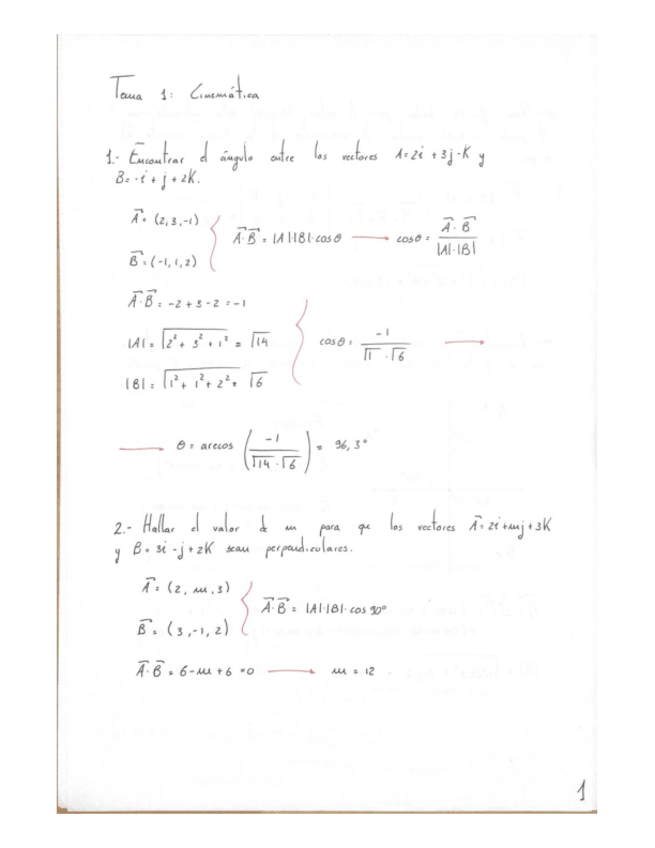 Tema 1: Cinemática
1.- Encontrar el ángulo entre los vectores A=2i+3j-K y
B=-i+j+2K.
A⃗=(2,3,-1)
A⃗·B⃗=|A|·|B|·cosθ → cosθ= A⃗·B⃗ / |A|·|B|
B⃗=(-1,1,2)
A⃗·B⃗=-2+3-2=-1
|A|=√(2²+3²+1²) = √14
cosθ= -1 / √1·√6 →
|B|=√(1²+1²+2²)= √6
→ θ=arccos (-1 / √14·√6) = 96,3°
2.- Hallar el valor de m para que los vectores A⃗=2i+mj+3K
y B=3i-j+2K sean perpendiculares.
A⃗=(2,m,3)
A⃗·B⃗=|A|·|B|·cos 90°
B⃗=(3,-1,2)
A⃗·B⃗=6-m+6=0 → m=12
1